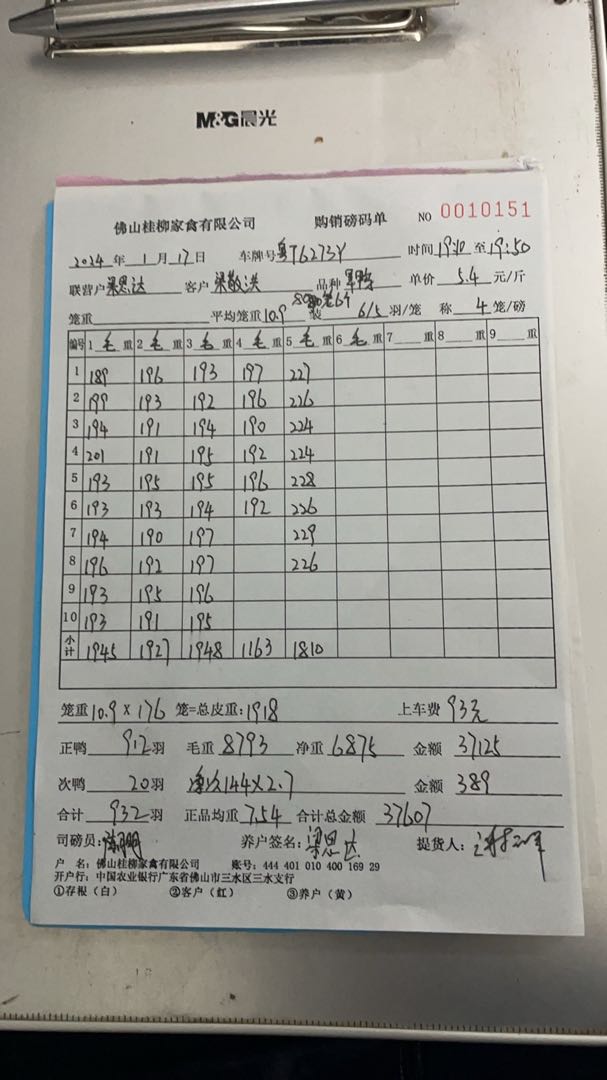 M&G晨光
佛山桂柳家禽有限公司 购销磅码单 NO 0010151
2024年1月17日 车牌号粤T6273Y 时间19:10至19:50
联营户梁思达 客户梁敬洪 品种 单价5.4元/斤
笼重 平均笼重10.9 装 6/5羽/笼 称4笼/磅
编号 1毛重 2毛重 3毛重 4毛重 5毛重 6毛重 7重 8重 9重
1 189 196 193 197 227
2 199 193 192 196 226
3 194 191 194 190 224
4 201 191 195 192 224
5 193 195 195 196 228
6 193 193 194 192 226
7 194 190 197 229
8 196 192 197 226
9 193 195 196
10 193 191 195
小计 1945 1927 1948 1163 1810
笼重10.9×176笼=总皮重:1918 上车费93元
正鸭912羽 毛重8793 净重6875 金额37125
次鸭20羽 144×2.7 金额389
合计932羽 正品均重7.54 合计总金额37607
司磅员: 养户签名:梁思达 提货人:
户 名:佛山桂柳家禽有限公司 账号:444 401 010 400 169 29
开户行:中国农业银行广东省佛山市三水区三水支行
①存根(白) ②客户(红) ③养户(黄)